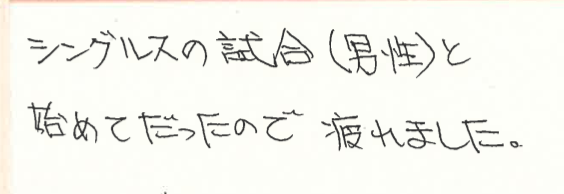 シングルスの試合(男性)と
始めてだったので疲れました。